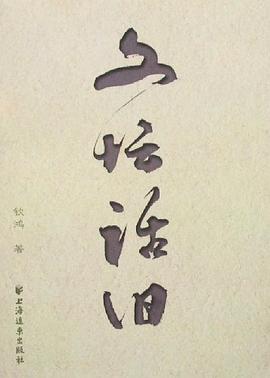 文坛话旧
钦鸿 著
上海远东出版社